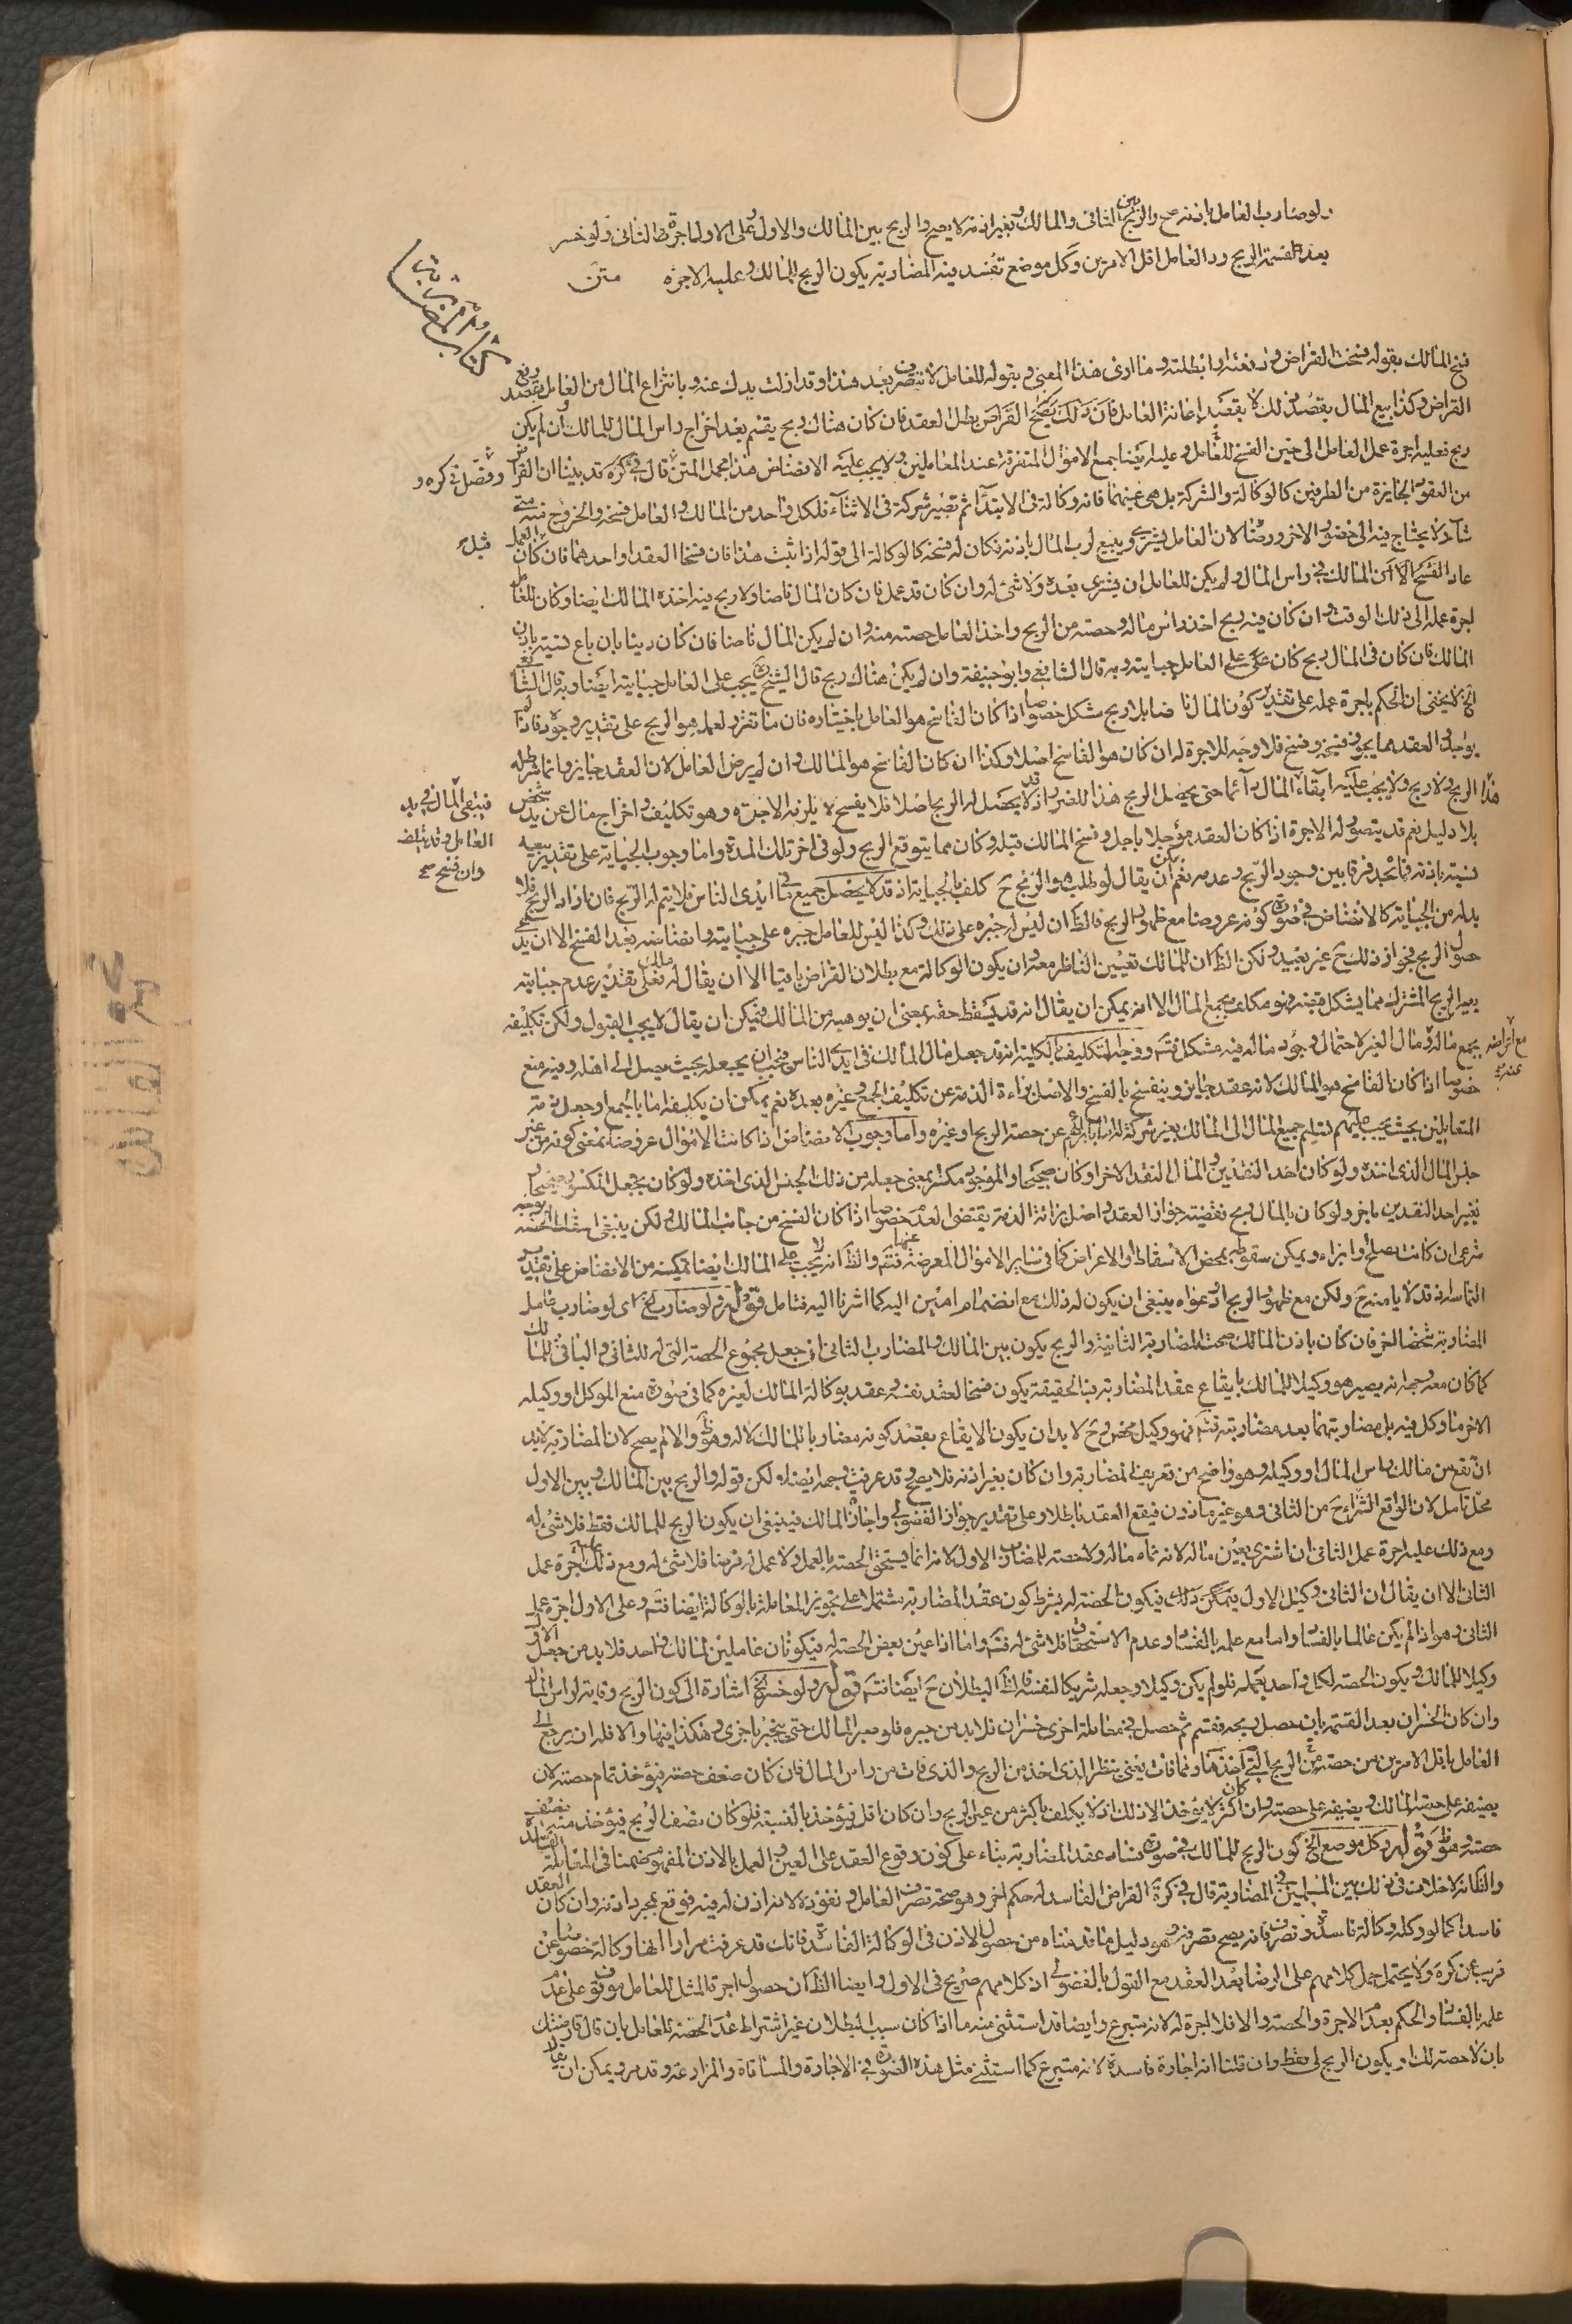 ولو ضارب العامل باذنه صح والربح بين الثانى والمالك وبغير اذنه لا يصح والربح بين المالك والاول وعلى الاول اجرة الثانى ولو خسر
بعد القسمة الربح رد العامل اقل الامرين وكل موضع تفسد فيه المضاربة يكون الربح للمالك وعليه الاجرة متن
كتاب المضاربة
فسخ المالك بقوله فسخت القراض ورفعته وابطلته وما ادى هذا المعنى وبقوله للعامل لا تتصرف بعد هذا وقد ازلت يدك عنه وبانتزاع المال من العامل بقصد رفع
القراض وكذا ببيع المال بقصد ذلك لا بقصد اعانة العامل فان ذلك القراض بطل العقد فان كان هناك ربح يقسم بعد اخراج راس المال للمالك وان لم يكن
ربح فعليه اجرة عمل العامل الى حين الفسخ للعامل وعليه ايضا جمع الاموال المتفرقة عند المعاملين ولا يجب عليه الانضاض هذا مجمل المتن قال فى كره قد بينا ان القراض وفصل فى كره و
من العقود الجايزة من الطرفين كالوكالة والشركة بل هى عينهما فانه وكالة فى الابتداء ثم تصير شركة فى الاثناء فلكل واحد من المالك والعامل فسخه والخروج منه متى
شاء ولا يحتاج فيه الى حضور الاخر ورضاه لان العامل يشترى ويبيع لرب المال باذنه فكان له فسخه كالوكالة الى قوله اذا ثبت هذا فان فسخا العقد او احدهما فان كان قبل العمل
عاد الفسخ الى المالك فى راس المال ولم يكن للعامل ان يشترى بعده ولا شئ له وان كان قد عمل فان كان المال ناضا ولا ربح فيه اخذه المالك ايضا وكان للعامل
اجرة عمله الى ذلك الوقت وان كان فيه ربح اخذ راس ماله وحصته من الربح واخذ العامل حصته منه وان لم يكن المال ناضا فان كان دينا بان باع نسيئة باذن
المالك فان كان فى المال ربح كان على العامل جبايته وبه قال الشافعى وابو حنيفة وان لم يكن هناك ربح قال الشيخ يجب على العامل جبايته ايضا وبه قال الشافعى
الخ لا يخفى ان الحكم باجرة عمله على تقدير كون المال ناضا بلا ربح مشكل خصوصا اذا كان الفاسخ هو العامل باختياره فان ما تقرر لعمله هو الربح على تقدير وجوده فاذا
يوجد والعقد مما يجوز فسخه وفسخ فلا وجه للاجرة له ان كان هو الفاسخ اصلا وكذا ان كان الفاسخ هو المالك وان لم يرض العامل لان العقد جايز وانما شرط له
هذا الربح ولا ربح ولا يجب عليه ابقاء المال دائما حتى يحصل الربح هذا للضرر اذ قد لا يحصل له الربح اصلا فلا يفسخ لا يلزمه الاجرة وهو تكليف واخراج مال عن يد شخص
فيبقى المال فى يد
العامل
وان فسخ صح
بلا دليل نعم قد يتصور له الاجرة اذا كان العقد مؤجلا باجل وفسخ المالك قبله وكان مما يتوقع الربح ولو فى اخر تلك المدة واما وجوب الجباية على تقدير بيعه
نسيئة باذنه فما نجد فرقا بين وجود الربح وعدمه نعم يمكن ان يقال لو طلب هو الربح ح كلف بالجباية اذ قد لا يحصل جميع ما فى ايدى الناس فلا يتم له الربح فان اراد الربح فلا
بد له من الجباية كالانضاض فى صورة كونه عروضا مع ظهور الربح فالظ ان ليس له جبره على ذلك وكذا ليس للعامل جبره على جبايته وانضاضه بعد الفسخ الا ان يدعى
حصول الربح فجواز ذلك ح غير بعيد ولكن الظ ان للمالك تعيين الناظر معه وان يكون الوكالة مع بطلان القراض باقيا الا ان يقال له مال فعلى تقدير عدم جبايته
يصير الربح المشترك مما يشكل قبضه فهو مكلف بجمع المال الا انه يمكن ان يقال انه قد يسقط حقه بمعنى ان يوهبه من المالك فيمكن ان يقال لا يجب القبول ولكن تكليفه
يجمع ماله ومال الغير لاحتمال وجود ماله فيه مشكل فتم ووجه التكليف بالكلية انه قد جعل مال المالك فى ايدى الناس فيجب ان يجعله بحيث يصل الى اهله وفيه منع
مع اعراضه
عنه
خصوصا اذا كان الفاسخ هو المالك لانه عقد جايز وينفسخ بالفسخ والاصل براءة الذمة عن تكليف الجمع وغيره بعده نعم يمكن ان يكلفه اما بالجمع او جعل ذمة
المتعاملين بحيث يجب عليهم تسليم جميع المال الى المالك بغير شركة له بابرائهم عن حصة الربح او غيره واما وجوب الانضاض اذا كانت الاموال عروضا بمعنى كونه من غير
جنس المال الذى اخذه ولو كان احد النقدين والمال النقد الاخر او كان صحيحا والموجود مكسرا بمعنى جعله من ذلك الجنس الذى اخذه ولو كان بجعل المكسر صحيحا
بغير احد النقدين باخر ولو كان بالمال ربح فقضية جواز العقد واصل براءة الذمة يقتضى العدم خصوصا اذا كان الفسخ من جانب المالك ولكن ينبغى اسقاط الحصة بوجه
شرعى ان كانت بصلح او ابراء ويمكن سقوطه بمحض الاسقاط والاعراض كما فى ساير الاموال المعرضة عنها فتم والظ انه لا يجب على المالك ايضا تمكينه من الانضاض على تقدير
التماسه اذ قد لا يامنه ح ولكن مع ظهور الربح او دعواه ينبغى ان يكون له ذلك مع انضمام امين اليه كما اشرنا اليه فتامل قوله ولو ضارب الخ اى لو ضارب عامل
المضاربة شخصا اخر فان كان باذن المالك صحت المضاربة الثانية والربح يكون بين المالك والمضارب الثانى اذ جعل مجموع الحصة التى له للثانى والباقى للمالك
كما كان معه وح يصير هو وكيلا للمالك بايقاع عقد المضاربة فبالحقيقة يكون فسخا لعقد نفسه وعقد بوكالة المالك لغيره كما فى صورة منع الموكل او وكيله
الاخر ما وكل فيه بل مضاربتهما بعد مضاربته فتم فهو وكيل محض وح لا بد ان يكون الايقاع بقصد كونه مضاربا للمالك لا له وهو ظ والا لم يصح لان المضاربة لا بد
ان تقع من مالك راس المال او وكيله وهو واضح من تعريف المضاربة وان كان بغير اذنه فلا يصح وقد عرفت وجهه ايضا ولكن قوله والربح بين المالك وبين الاول
محل تامل لان الواقع الشراء ح من الثانى وهو غير ماذون فيقع العقد باطلا وعلى تقدير جواز الفضولى واجازة المالك فينبغى ان يكون الربح للمالك فقط فلا شئ له
ومع ذلك عليه اجرة عمل الثانى ان اشترى بعين ماله لانه نماء ماله ولا حصة للمضارب الاول لانه انما يستحق الحصة بالعمل ولا عمل له فرضا فلا شئ له ومع ذلك عليه اجرة عمل
الثانى الا ان يقال ان الثانى وكيل الاول فيمكن ذلك فيكون الحصة له بشرط كون عقد المضاربة مشتملا على تجويز المعاملة بالوكالة ايضا فتم وعلى الاول اجرة عمل
الثانى وهو اذا لم يكن عالما بالفساد واما مع علمه بالفساد وعدم الاستحقاق فلا شئ له فتم واما اذا عين بعض الحصة له فيكونان عاملين لمالك واحد فلا بد من جعل الاول
وكيلا للمالك ويكون الحصة لكل واحد بعمله فلو لم يكن وكيلا وجعله شريكا لنفسه فالظ البطلان ح ايضا فتم قوله ولو خسر الخ اشارة الى كون الربح وقاية لراس المال
وان كان الخسران بعد القسمة بان حصل ربح فقسم ثم حصل فى معاملة اخرى خسران فلا بد من جبره فلو صبر المالك حتى ينجبر باخرى وهكذا فبها والا فله ان يرجع الى
العامل باقل الامرين من حصته من الربح التى اخذها ومما فات يعنى ينظر الذى اخذ من الربح والذى فات من راس المال فان كان ضعف حصته فيؤخذ تمام حصته لان
نصيفه على حصة المالك ونصيفه على حصته وان كان اكثر لا يؤخذ الا ذلك اذ لا يكلف باكثر من عين الربح وان كان اقل فيؤخذ بالنسبة فلو كان نصف الربح فيؤخذ منه نصف
حصته وهو ظ قوله وكل موضع الخ كون الربح للمالك فى صورة فساد عقد المضاربة بناء على كون وقوع العقد على العين والعمل بالاذن المفهوم ضمنا فى المعاملة الفاسدة
والظ انه لا خلاف فى ذلك بين المسلمين فى المضاربة قال فى كره القراض الفاسد له حكم اخر وهو صحة تصرف العامل ونفوذه لانه اذن له فيه فوقع بمجرد اذنه وان كان العقد
فاسدا كما لو وكله وكالة فاسدة وتصرف فانه يصح تصرفه وهو دليل ما قدمناه من حصول الاذن فى الوكالة الفاسدة فانك قد عرفت مرارا انها وكالة خصوصا عن
قريب عن كره ولا يحتمل حمل كلامهم على الرضا بعد العقد مع القول بالفضولى اذ كلامهم صريح فى الاول وايضا الظ ان حصول اجرة المثل للعامل موقوف على عدم
علمه بالفساد والحكم بعدم الاجرة والحصة والا فلا اجرة له لانه متبرع وايضا قد استثنى منه ما اذا كان سبب البطلان غير اشتراط عدم الحصة للعامل بان قال قارضتك
بان لا حصة لك ويكون الربح لى فقط وان قلنا انه اجارة فاسدة لانه متبرع كما استثنى مثل هذه الصورة فى الاجارة والمساقاة والمزارعة وقد مر ويمكن ان يقال